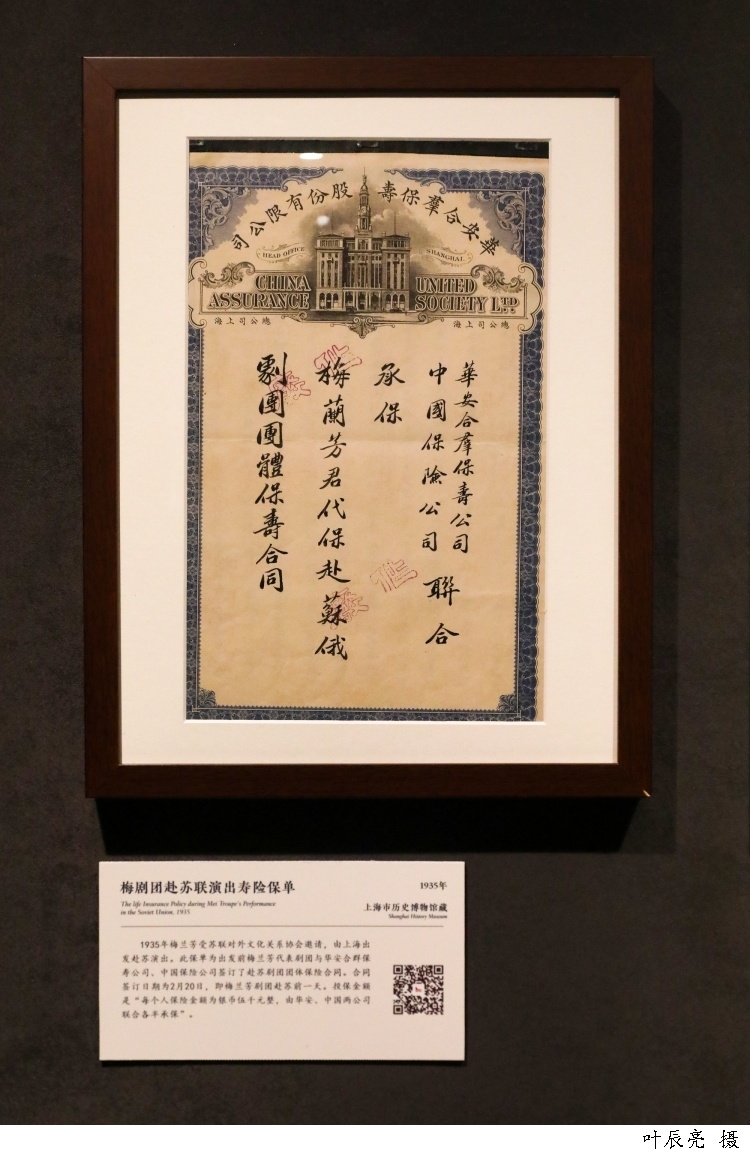 華安合羣保壽股份有限公司
HEAD OFFICE
SHANGHAI
CHINA UNITED
ASSURANCE SOCIETY LTD.
總公司上海
總公司上海
華安合羣保壽公司
中國保險公司 聯合
承保
梅蘭芳君代保赴蘇俄
劇團團體保壽合同
梅剧团赴苏联演出寿险保单
1935年
The life Insurance Policy during Mei Troupe's Performance
in the Soviet Union, 1935
上海市历史博物馆藏
Shanghai History Museum
1935年梅兰芳受苏联对外文化关系协会邀请，由上海出
发赴苏演出。此保单为出发前梅兰芳代表剧团与华安合群保
寿公司、中国保险公司签订了赴苏剧团团体保险合同。合同
签订日期为2月20日，即梅兰芳剧团赴苏前一天。投保金额
是“每个人保险金额为银币伍千元整，由华安、中国两公司
联合各半承保”。
叶辰亮 摄